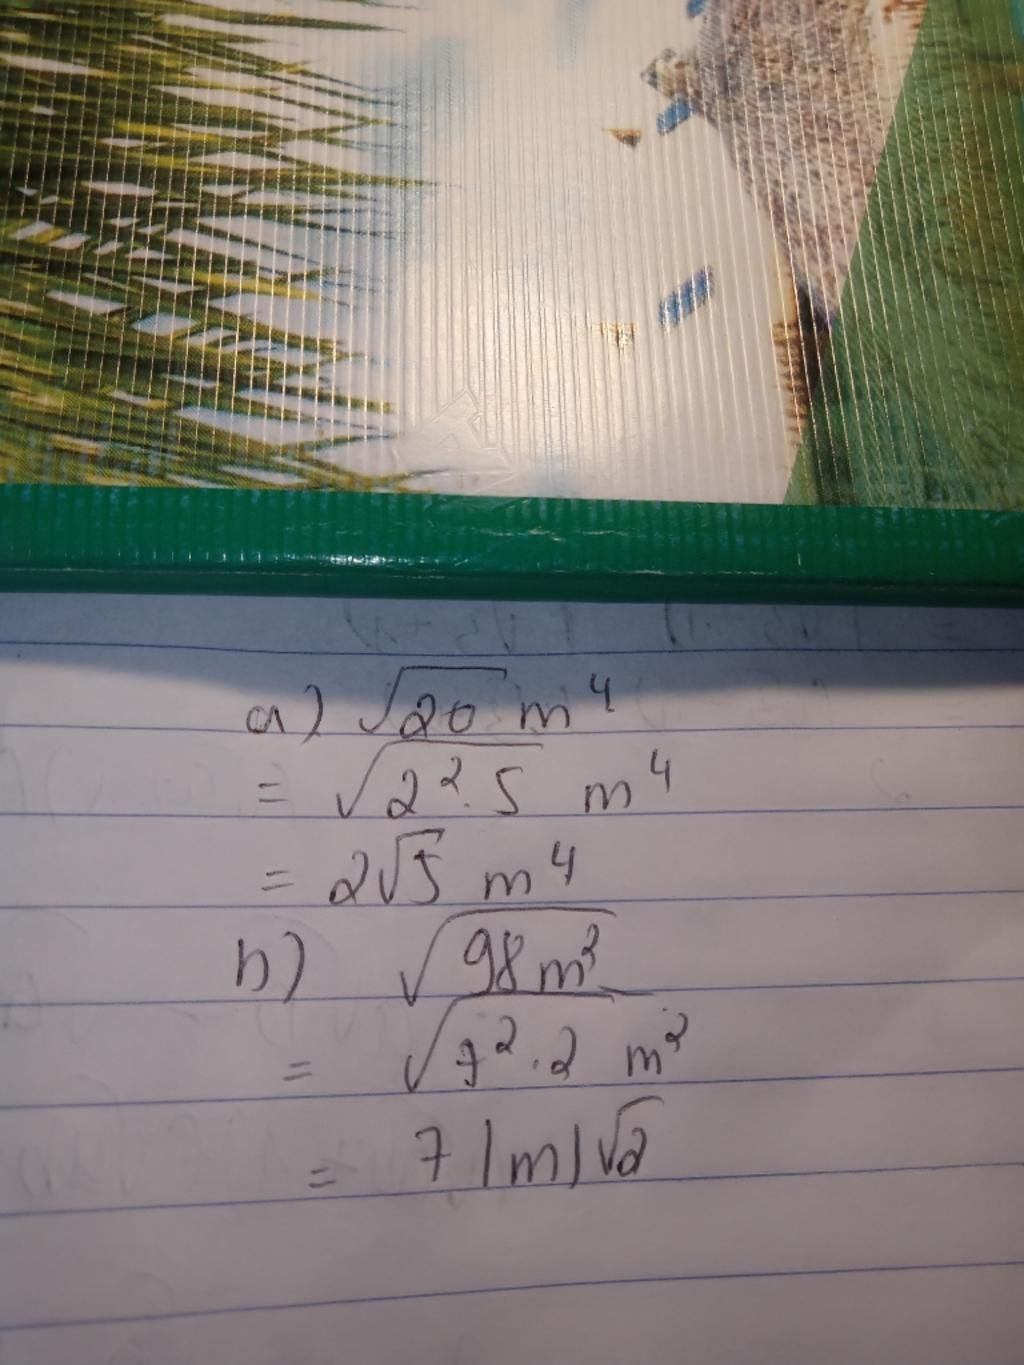 a) √20 m⁴
= √2².5 m⁴
= 2√5 m⁴
b) √98m²
= √7².2 m²
= 7|m|√2